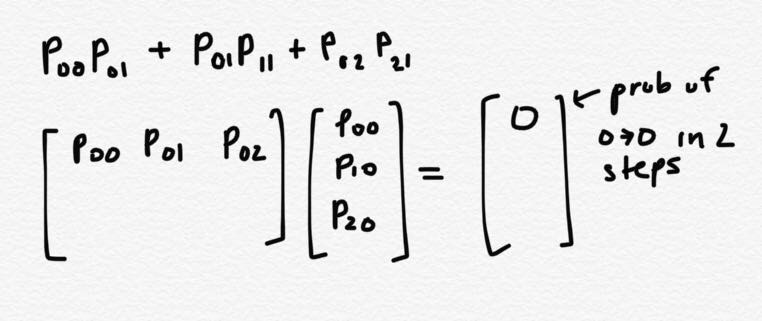 P₀₀P₀₁ + P₀₁P₁₁ + P₀₂P₂₁
[P₀₀ P₀₁ P₀₂] [P₀₀ P₁₀ P₂₀] = [0] ← prob of
0→0 in 2
steps